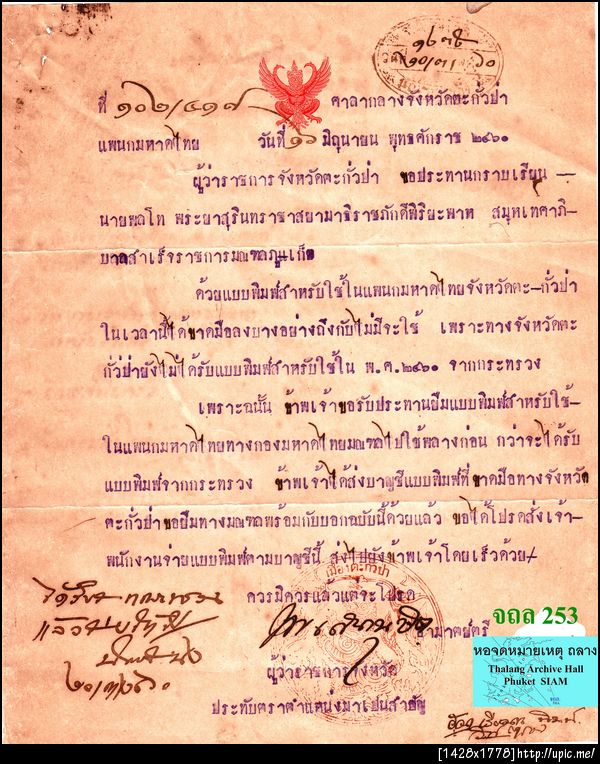 ๑๖๓๕
๒๐/๓/๖๐
ที่ ๑๐๒/๔๑๗ ศาลากลางจังหวัดตะกั่วป่า
แพนกมหาดไทย วันที่ ๑๖ มิถุนายน พุทธศักราช ๒๔๖๐
ผู้ว่าราชการจังหวัดตะกั่วป่า ขอประทานกราบเรียน —
นายพลโท พระยาสุรินทราชาสยามาธิราชภักดีพิริยะพาห สมุหเทศาภิ-
บาลสำเร็จราชการมณฑลภูเก็ต
ด้วยแบบพิมพ์สำหรับใช้ในแพนกมหาดไทยจังหวัดตะ-กั่วป่า
ในเวลานี้ได้ขาดมือลงบางอย่างถึงกับไม่มีจะใช้ เพราะทางจังหวัดตะ
กั่วป่ายังไม่ได้รับแบบพิมพ์สำหรับใช้ใน พ.ศ.๒๔๖๐ จากกระทรวง
เพราะฉนั้น ข้าพเจ้าขอรับประทานยืมแบบพิมพ์สำหรับใช้-
ในแพนกมหาดไทยทางกองมหาดไทยมณฑลไปใช้พลางก่อน กว่าจะได้รับ
แบบพิมพ์จากกระทรวง ข้าพเจ้าได้ส่งบาญชีแบบพิมพ์ที่ขาดมือทางจังหวัด
ตะกั่วป่าขอยืมทางมณฑลพร้อมกับบอกฉบับนี้ด้วยแล้ว ขอได้โปรดสั่งเจ้า-
พนักงานจ่ายแบบพิมพ์ตามบาญชีนี้ ส่งไปยังข้าพเจ้าโดยเร็วด้วย
เมืองตะกั่วป่า
ควรมิควรแล้วแต่จะโปรด
อำมาตย์ตรี
ผู้ว่าราชการจังหวัด
ประทับตราตำแหน่งมาเปนสำคัญ
จถล 253
หอจดหมายเหตุ ถลาง
Thalang Archive Hall
Phuket SIAM
[1428x1778]http://upic.me/